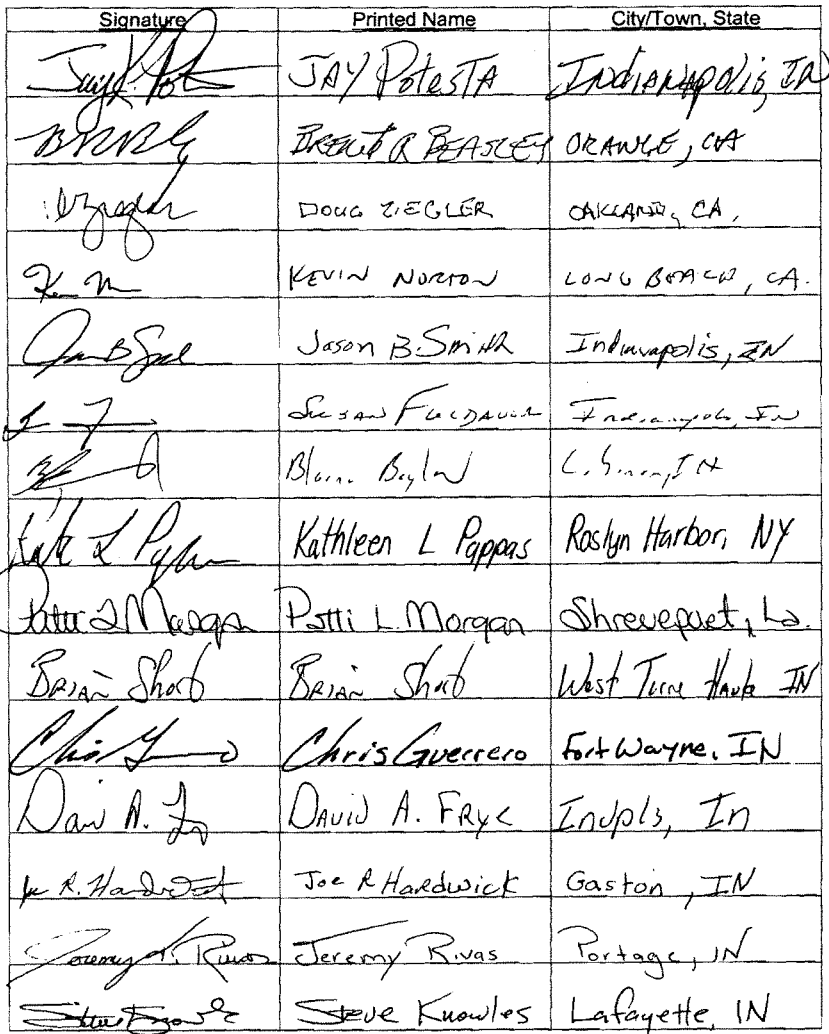 Signature Printed Name City/Town, State
JAY PotesTA Indianapolis, IN
BRENT R BEASLEY ORANGE, CA
DOUG ZIEGLER OAKLAND, CA.
KEVIN NORTON LONG BEACH, CA.
Jason B. Smith Indianapolis, IN
SUSAN Indianapolis, IN
IN
Kathleen L Pappas Roslyn Harbor, NY
Patti L Morgan Patti L. Morgan Shreveport, La.
BRIAN Short BRIAN Short West Terre Haute IN
Chris Guerrero Fort Wayne, IN
David A. DAVID A. FRYE Indpls, In
Joe R. Hardwick Joe R Hardwick Gaston, IN
Jeremy Rivas Jeremy Rivas Portage, IN
Steve Knowles Steve Knowles Lafayette, IN